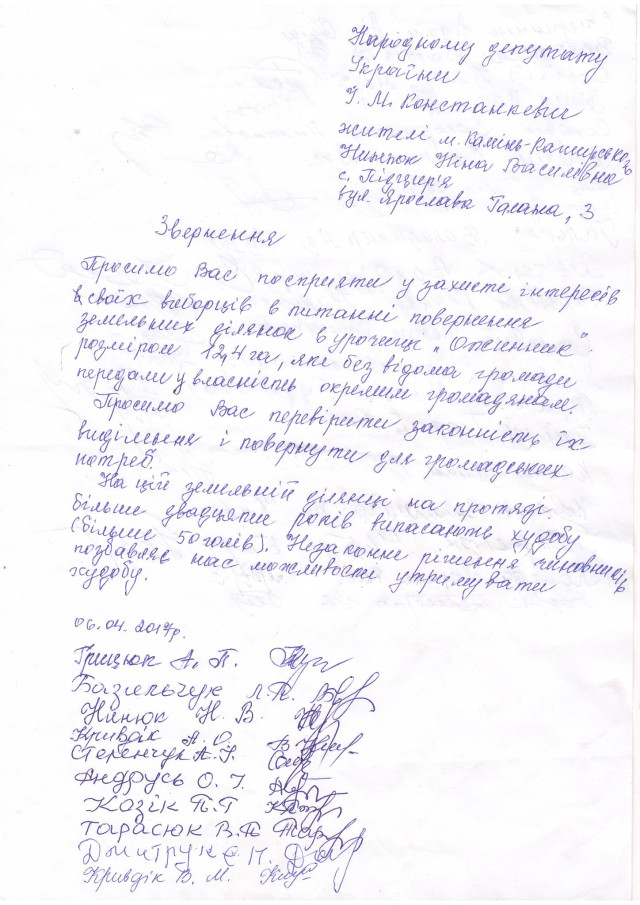 Народному депутату
України
І. М. Констанкевич
жителі м. Камінь-Каширського
Нинюк Ніна Василівна
с. Підцир'я
вул. Ярослава Галана, 3
Звернення
Просимо Вас посприяти у захисті інтересів
своїх виборців в питанні повернення
земельних ділянок в урочищі „Ожинник"
розміром 12,4 га, які без відома громади
передали у власність окремим громадянам.
Просимо Вас перевірити законність їх
виділення і повернути для громадських
потреб.
На цій земельній ділянці на протязі
більше двадцяти років випасають худобу
(більше 50 голів). Незаконне рішення чиновників
позбавляє нас можливости утримувати
худобу.
06.04.2017р.
Грицюк А. П.
Базильчук Л.П.
Нинюк Н. В.
Кривдік А. О.
Степенчук А. І.
Андрусь О. І.
Козік П.Г
Тарасюк В.П
Дмитрук Є П.
Кривдік В. М.